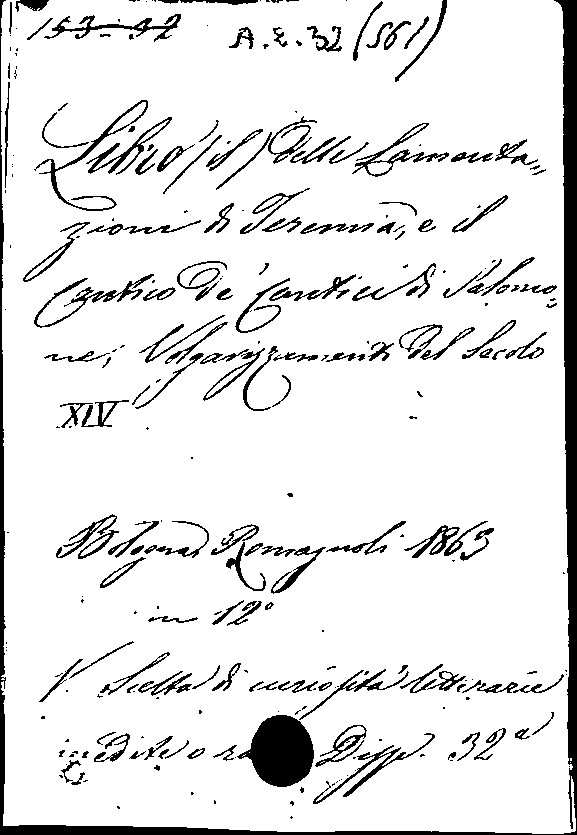 153-32 A.E.32 (561)
Libro (il) delle Lamenta=
zioni di Jeremia, e il
Cantico de' Cantici di Salomo=
ne; Volgarizzamenti del Secolo
XIV
Bologna Romagnoli 1863
in 12°
V. Scelta di curiosità letterarie
inedite o ra Disp. 32ª